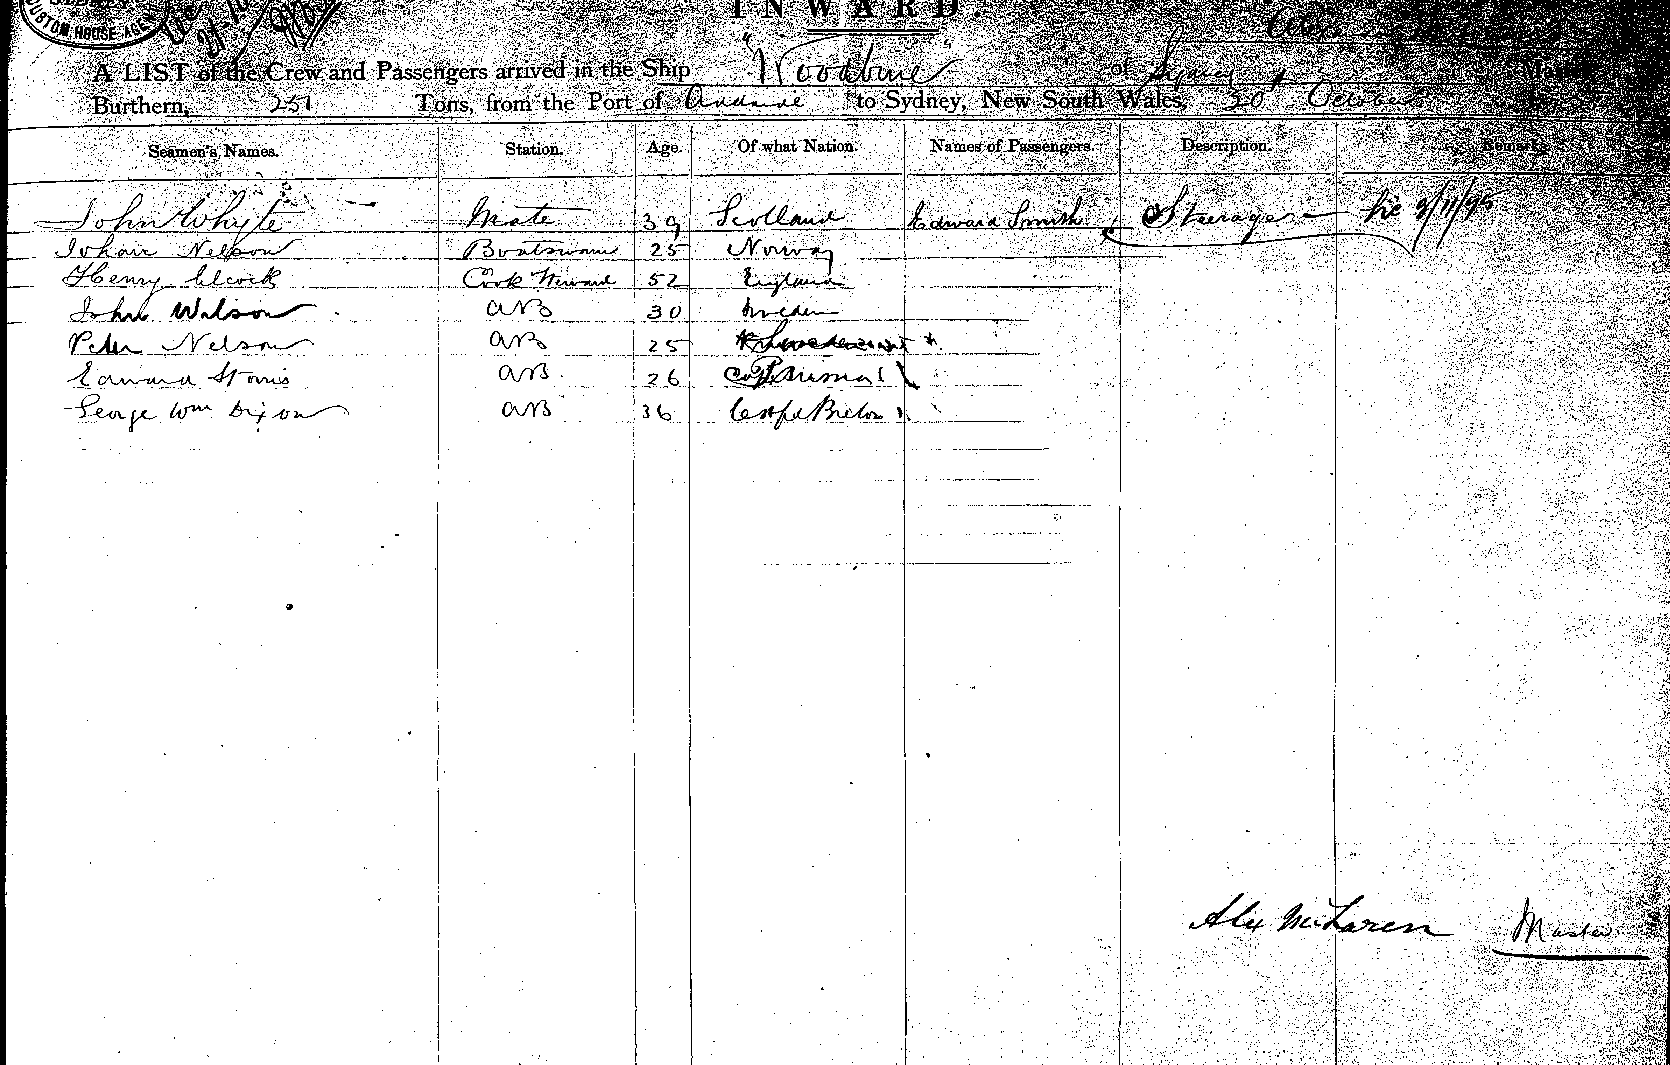 CUSTOM HOUSE AGEN
INWARD.
A LIST of the Crew and Passengers arrived in the Ship "Woodbine" of Sydney
Burthern, 251 Tons, from the Port of to Sydney, New South Wales, 30 October
Seamen's Names. Station. Age. Of what Nation. Names of Passengers. Description. Remarks
John Whyte Mate 39 Scotland Edward Smith Steerage
Johan Nelson Boatswain 25 Norway
Henry Alcock Cook Steward 52 England
John Wilson AB 30 Sweden
Peter Nelson AB 25
Edward Storris AB 26
George Wm Dixon AB 36 Cape Breton
Alex McLaren Master